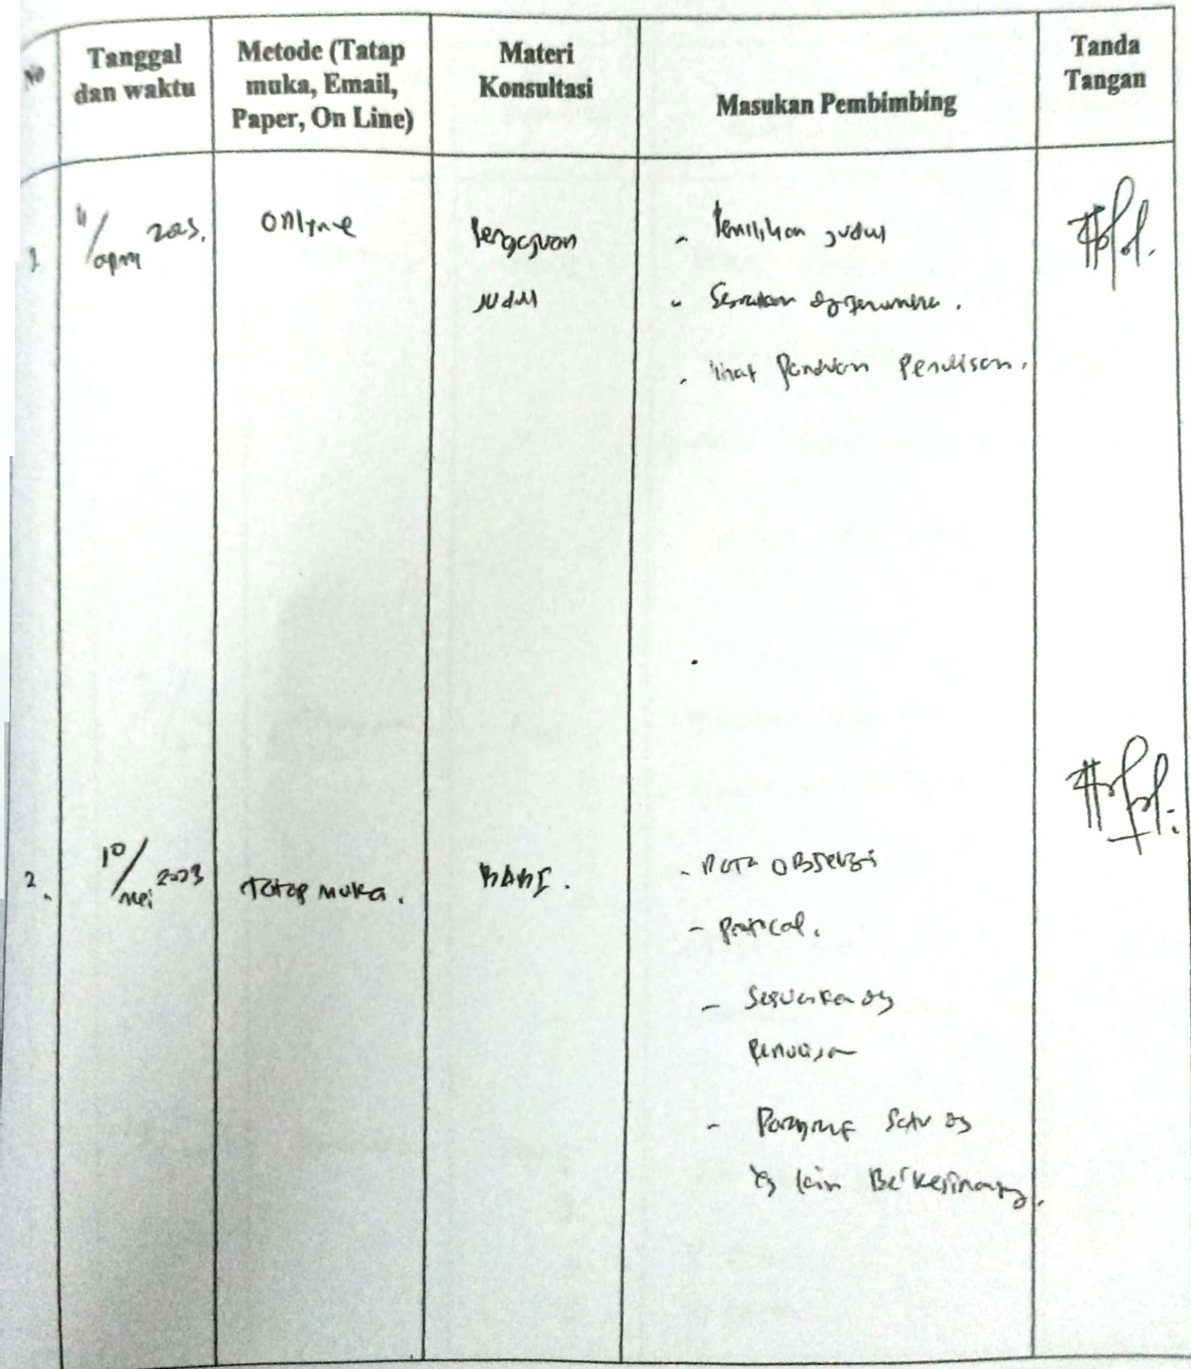 No
Tanggal
dan waktu
Metode (Tatap
muka, Email,
Paper, On Line)
Materi
Konsultasi
Masukan Pembimbing
Tanda
Tangan
1
11/april 2023.
Online
Pengajuan
Judul
- Pemilihan judul
- Sesuaikan dg
- lihat Panduan Penulisan.
2.
10/mei 2023
Tatap muka.
BAB I.
- Data Observasi
-
- Sesuaikan dg
Penulisan
- Paragraf Satu dg
yg lain Berkesinambung.